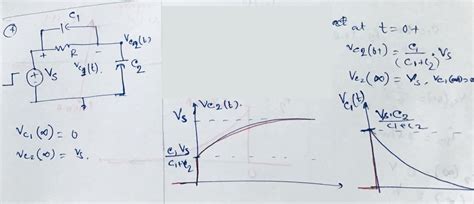 C₁
R
+
−
V_{C2}(t)
V_{C2}(t).
C₂
+
V_S
V_{C1}(∞) = 0
V_{C2}(∞) = V_S.
V_{C2}(t).
V_S
C₁ V_S
C₁+C₂
at t = 0+
V_{C2}(0+) = C₁/(C₁+C₂) · V_S
V_{C2}(∞) = V_S.
V_{C1}(t)
V_S·C₂
C₁+C₂